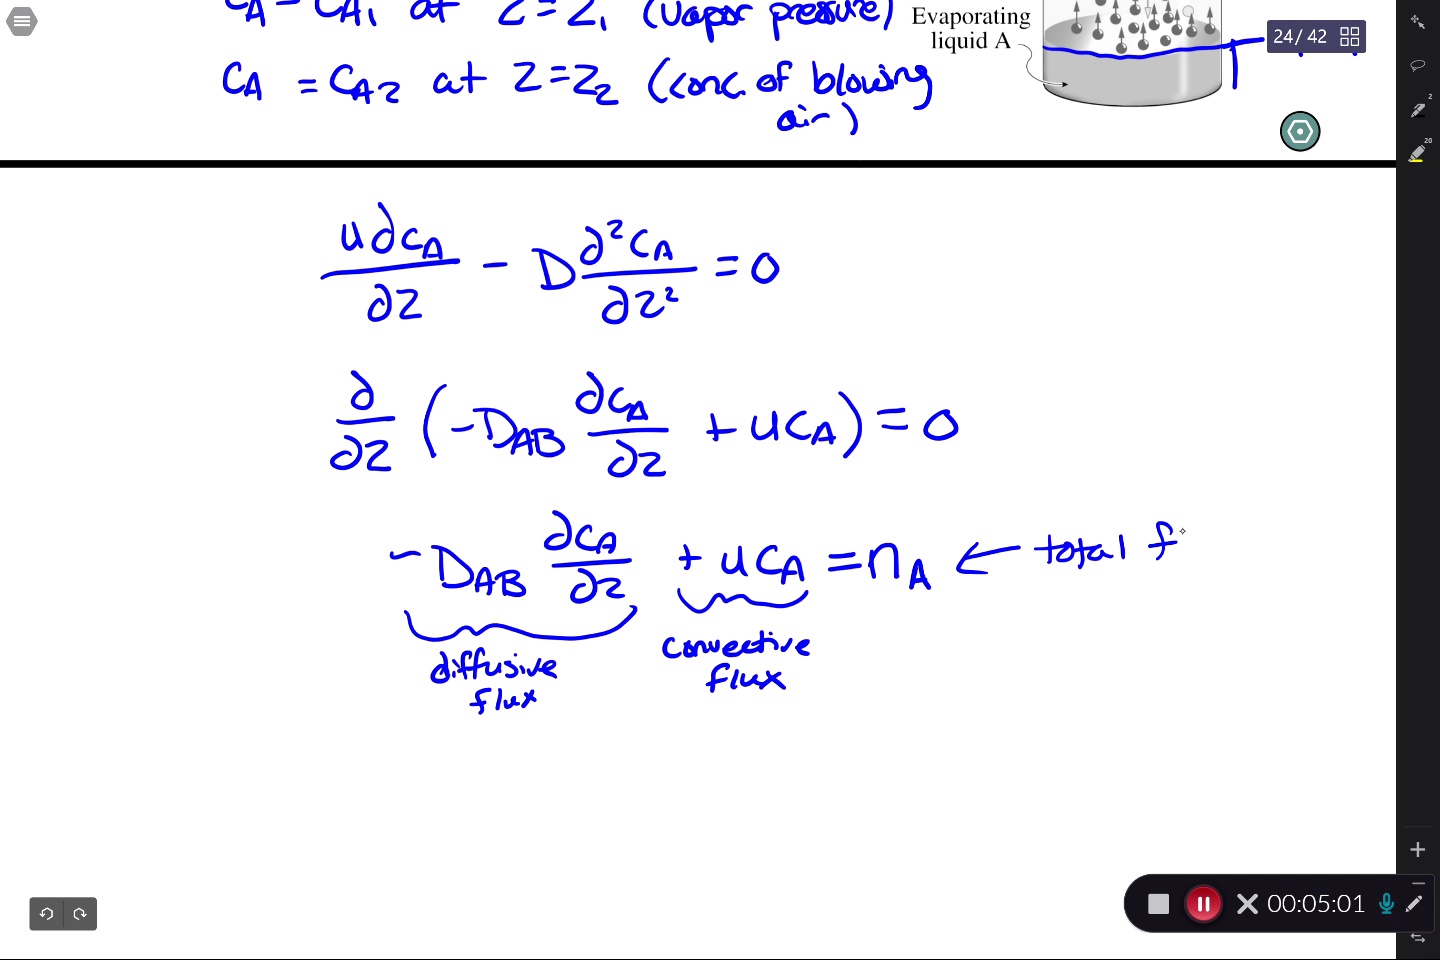 C_A = C_A1 at z = z_1 (vapor pressure)
C_A = C_A2 at z = z_2 (conc of blowing
air)
Evaporating
liquid A
24/ 42
2
20
u∂C_A/∂z - D ∂²C_A/∂z² = 0
∂/∂z (-D_AB ∂C_A/∂z + uC_A) = 0
-D_AB ∂C_A/∂z + uC_A = n_A ← total f
diffusive
flux
convective
flux
00:05:01